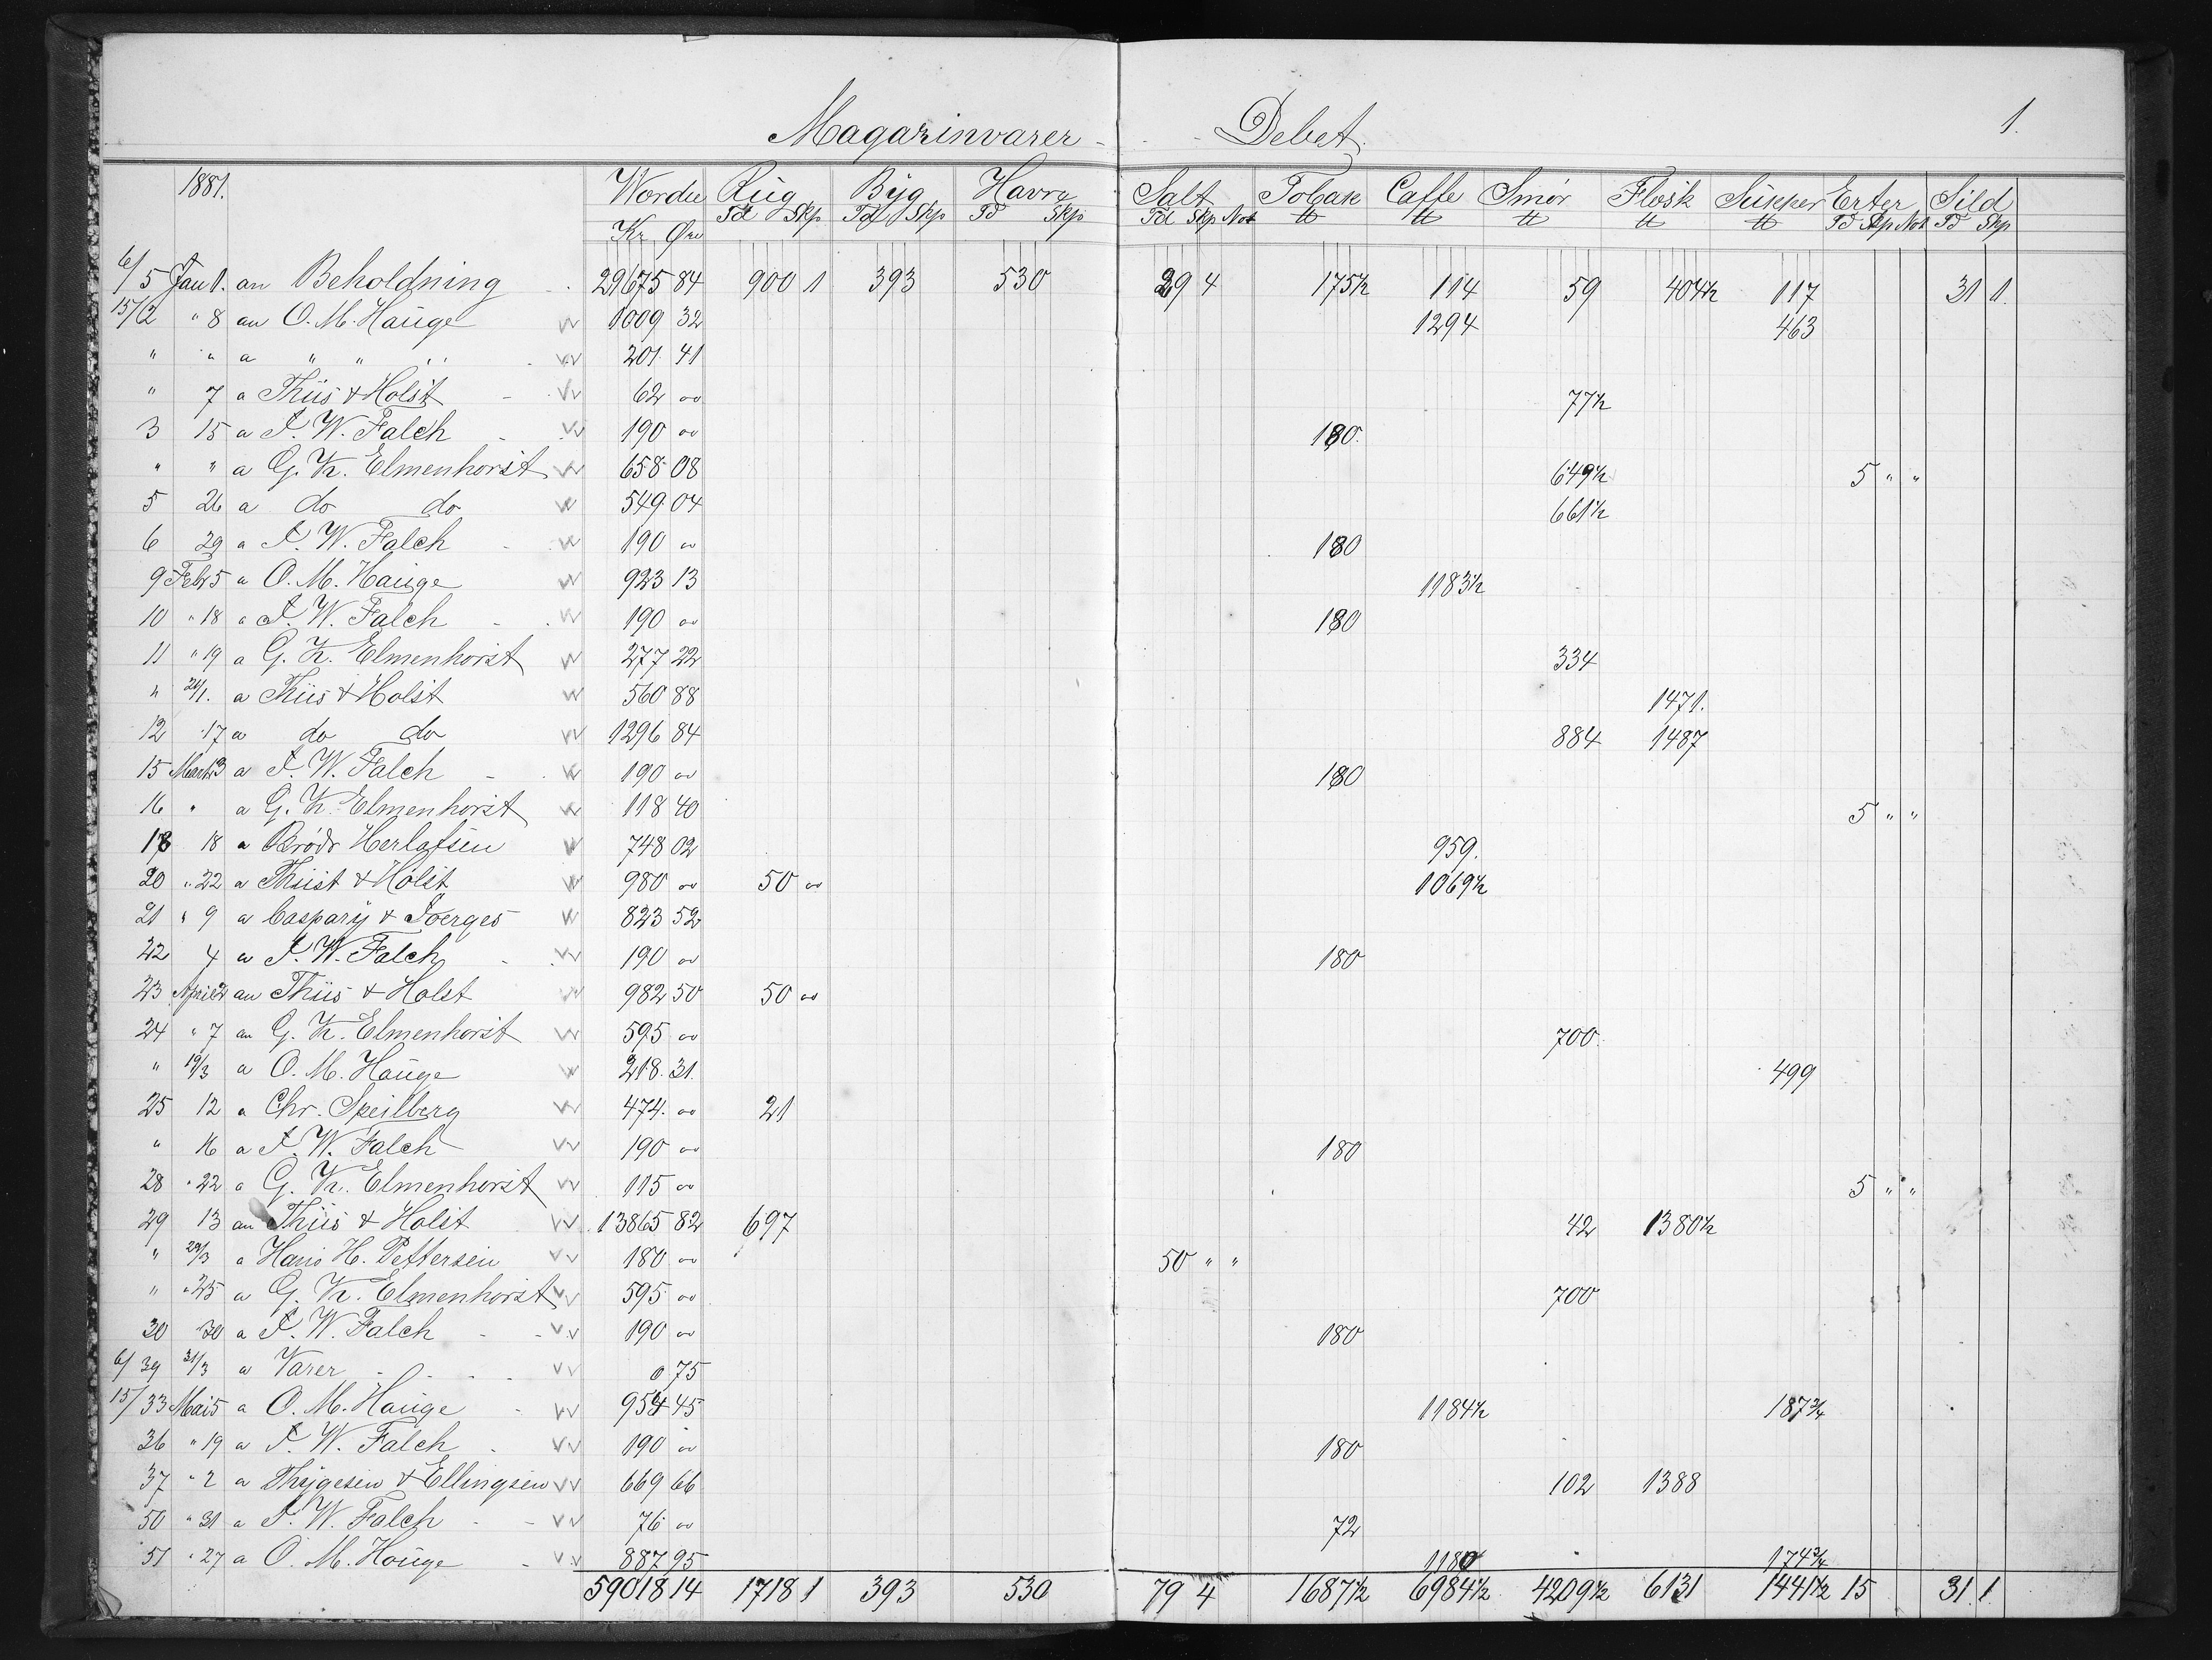 Magazinvarer - - Debet. 1.
1881. Worde Rug Byg Havre Salt Tobak Caffe Smør Flesk Sukker Erter Sild
Kr Øre Td Skp Td Skp Td Skp Td Skp Not ℔ ℔ ℔ ℔ ℔ Td Skp Not Td Skp
6/5 Jan 1. an Beholdning 29675 84 900 1 393 530 29 4 175½ 114 59 404½ 117 31 1.
15/2 " 8 an O. M. Hauge 1009 32 1294 463
" " a " " " 201. 41
" 7 a Thiis & Holst 62 00 77½
3 15 a J. W. Falch 190 00 180.
" " a G. K. Elmenhorst 658 08 649½ 5 " "
5 26 a do do 549 04 661½
6 29 a J. W. Falch 190 00 180
9 Feb 5 a O. M. Hauge 923 13 1183½
10 " 18 a J. W. Falch 190 00 180
11 " 19 a G. K. Elmenhorst 277 22 334
" 26/1. a Thiis & Holst 560 88 1471.
12 17 a do do 1296 84 884 1487
15 Marts 3 a J. W. Falch 190 00 180
16 " a G. K. Elmenhorst 118 40 5 " "
18 18 a Brødr Herlofsen 748 02 959.
20 " 22 a Thiist & Holst 980 00 50 00 1069½
21 " 9 a Caspary & Joerges 823 52
22 4 a J. W. Falch 190 00 180
23 April 2 an Thiis & Holst 982 50 50 00
24 " 7 an G. K. Elmenhorst 595 00 700.
" 19/3 a O. M. Hauge 218. 31. 499
25 12 a Chr. Speilberg 474. 00 21
" 16 a J. W. Falch 190 00 180
28 " 22 a G. K. Elmenhorst 115 00 5 " "
29 13 an Thiis & Holst 13865 82 697 42 1380½
" 29/3 a Hans H. Pettersen 180 00 50 " "
" " 25 a G. K. Elmenhorst 595 00 700
30 30 a J. W. Falch 190 00 180
6/39 31/3 a Varer 0 75
15/33 Mai 5 a O. M. Hauge 954 45 1184½ 187¾
36 " 19 a J. W. Falch 190 00 180
37 " 2 a Thygesen & Ellingsen 669 66 102 1388
50 " 31 a J. W. Falch 76 00 72
51 " 27 a O. M. Hauge 887 95 1180 174¾
59018 14 1718 1 393 530 79 4 1687½ 6984½ 4209½ 6131 1441½ 15 31 1.